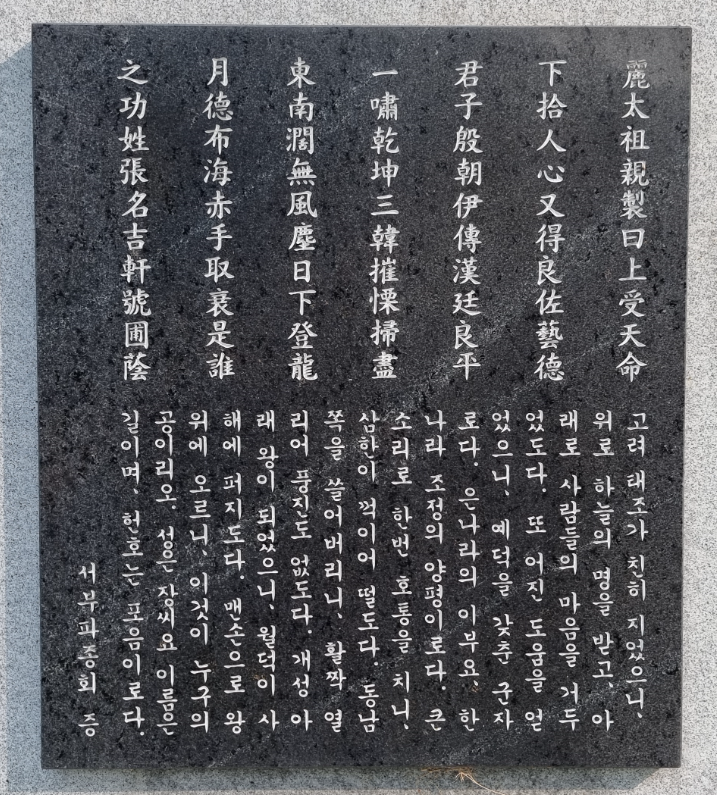 麗太祖親製曰上受天命
下拾人心又得良佐藝德
君子殷朝伊傅漢廷良平
一嘯乾坤三韓摧慄掃盡
東南濶無風塵日下登龍
月德布海赤手取袞是誰
之功姓張名吉軒號圃蔭
고려 태조가 친히 지었으니,
위로 하늘의 명을 받고, 아
래로 사람들의 마음을 거두
었도다. 또 어진 도움을 얻
었으니, 예덕을 갖춘 군자
로다. 은나라의 이부요, 한
나라 조정의 양평이로다. 큰
소리로 한번 호통을 치니,
삼한이 꺽이어 떨도다. 동남
쪽을 쓸어버리니, 활짝 열
리어 풍진도 없도다. 개성 아
래 왕이 되었으니, 월덕이 사
해에 퍼지도다. 맨손으로 왕
위에 오르니, 이것이 누구의
공이리오. 성은 장씨요 이름은
길이며, 헌호는 포음이로다.
서부파종회 증